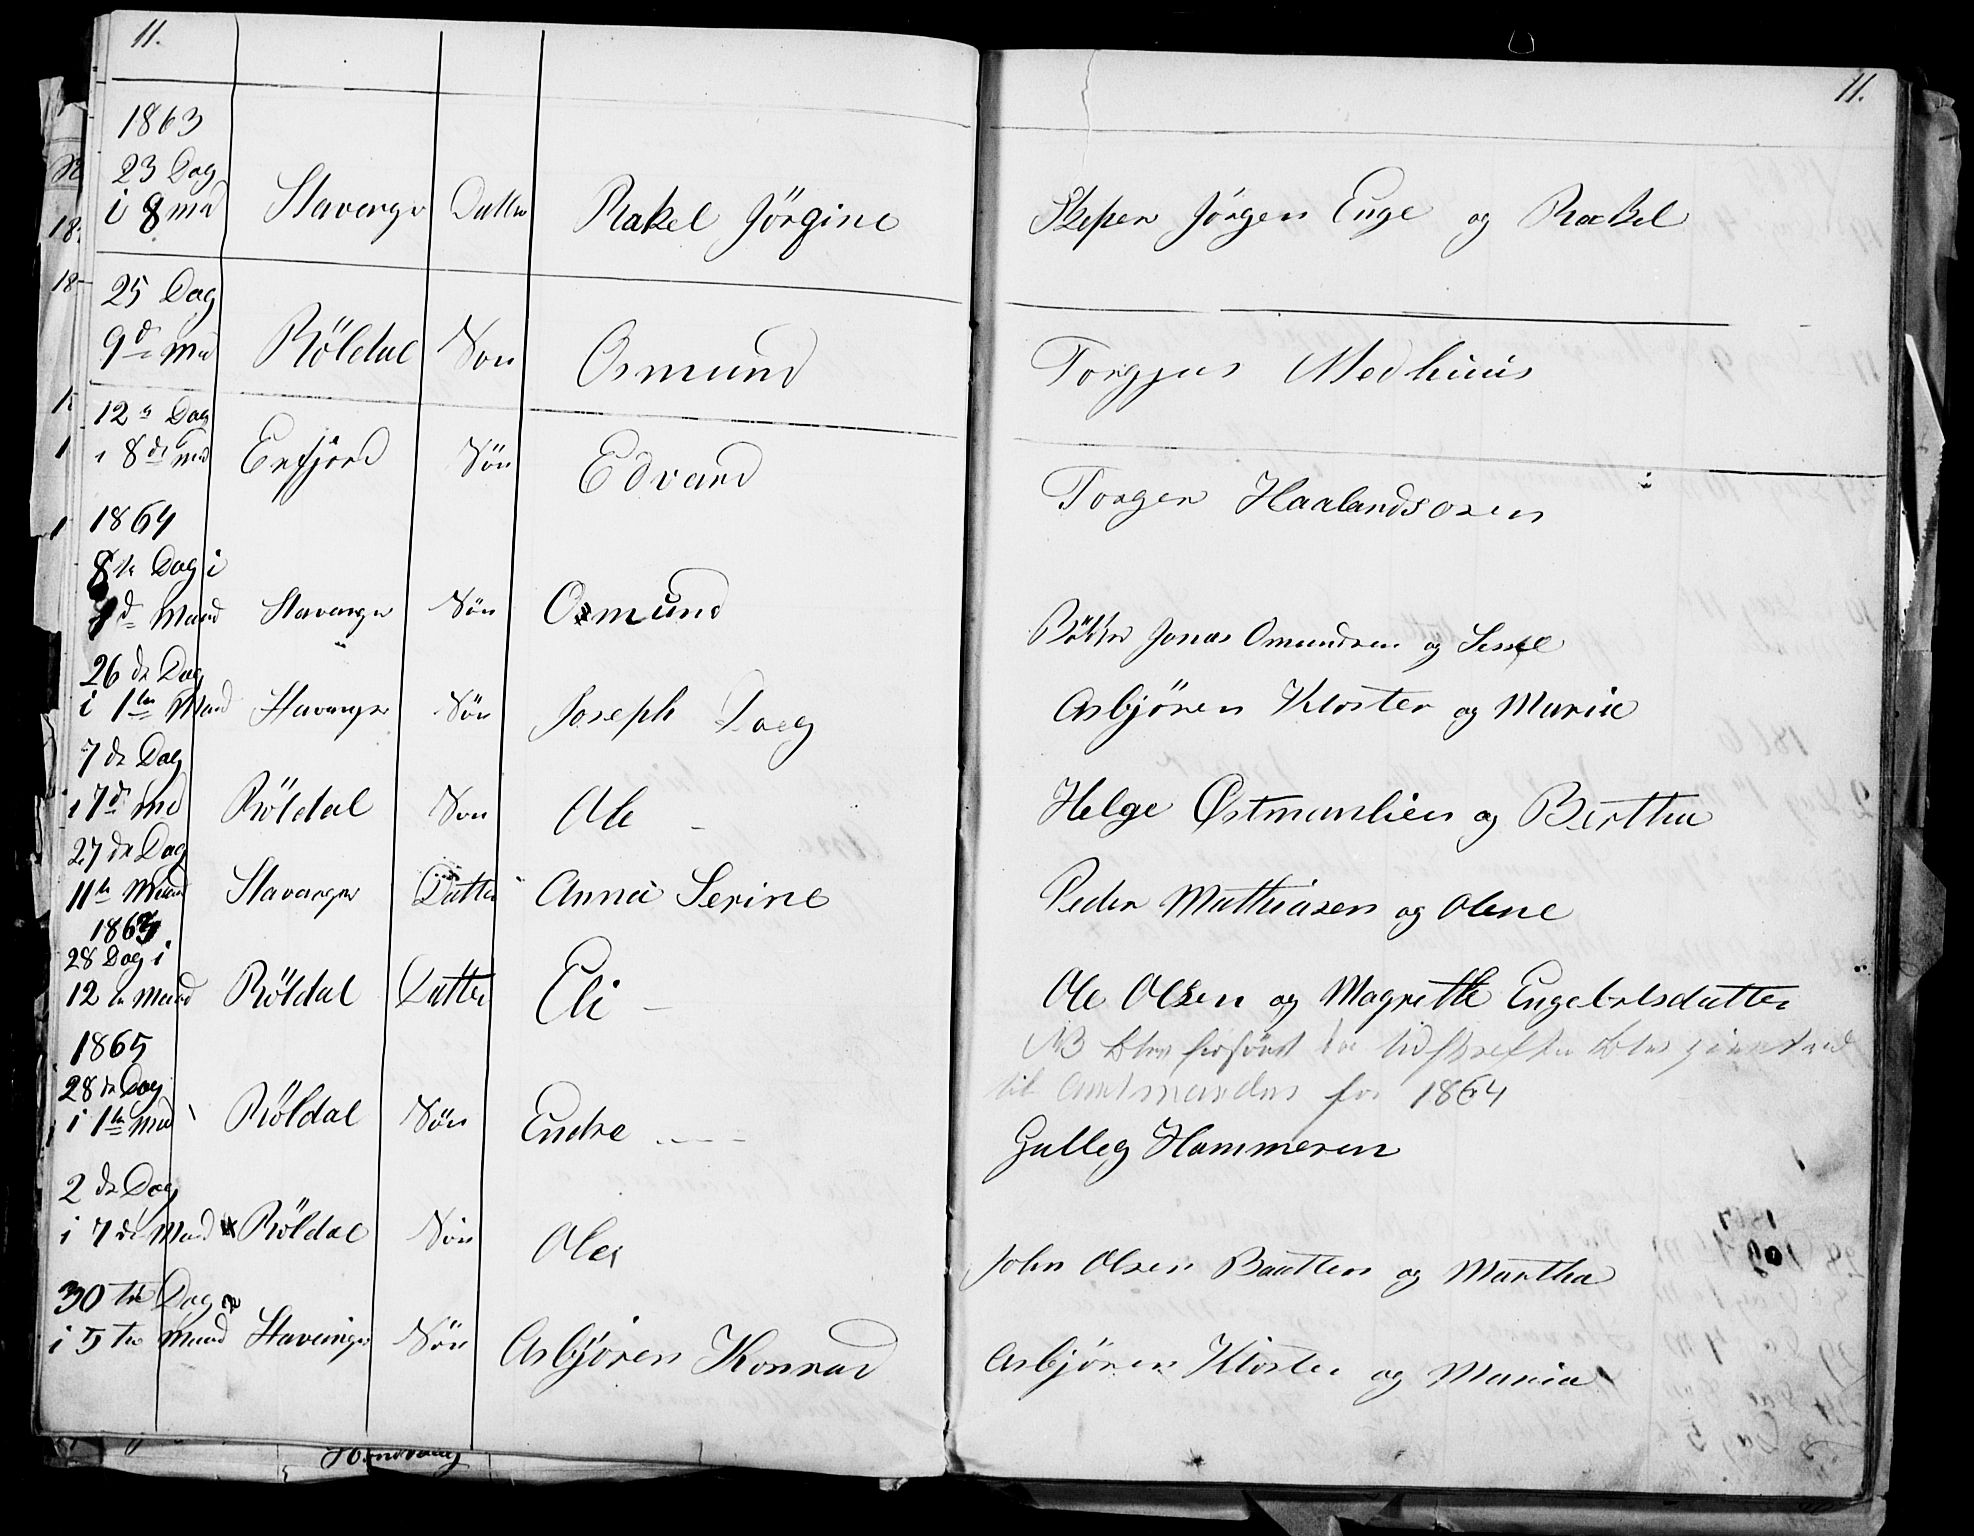 11.
11.
1863
23 Dag
i 8 md Stavanger Datter Rakel Jörgine Skipper Jörgen Enge og Rachel
25 Dag
9d md Röldal Son Osmund Torgjus Medhuus
12 Dag
i 8de md Erfjord Sön Edvard Torger Haalandsosen
1864
8de Dag i
Maand Stavanger Sön Osmund Jonas Omundsen og Sissel
26de Dag
i 1te Mand Stavanger Sön Joseph Asbjören Kloster og Maria
7de Dag
i 7de md Röldal Son Ole Helge Østmanlien og Bertha
27de Dag
11te Maand Stavanger Datter Anna Serine Peder Mathiasen og Olene
28 Dag i
12te Maand Röldal Datter Eli Ole Olsen og Magrethe Engebretsdatter
NB blev til Amtmanden for 1864
1865
28de Dag
i 1te md Röldal Sön Endre Gulleg Hammeren
2de Dag
i 7de Mand Röldal Sön Ole John Olsen og Martha
30te Dag
i 5te Maand Stavanger Sön Asbjören Konrad Asbjören Kloster og Maria